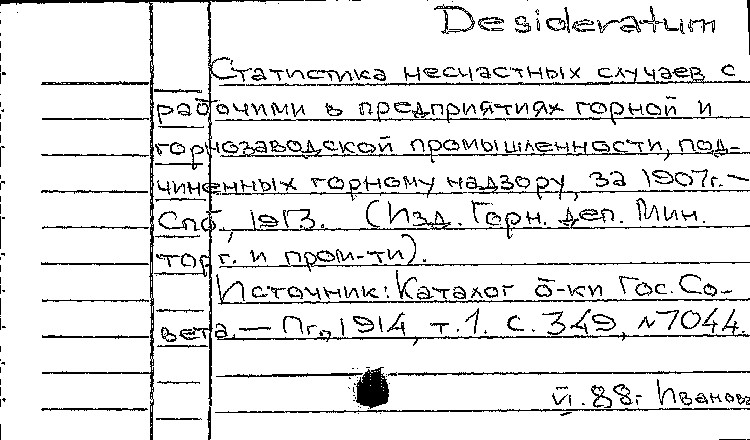 Desideratum
Статистика несчастных случаев с
рабочими в предприятиях горной и
горнозаводской промышленности, под-
чиненных горному надзору, за 1907г.—
Спб., 1913. (Изд. Горн. деп. Мин.
торг. и пром-ти).
Источник: Каталог б-ки Гос. Со-
вета.— Пг., 1914, т.1. с. 349, №7044.
88г Иванова